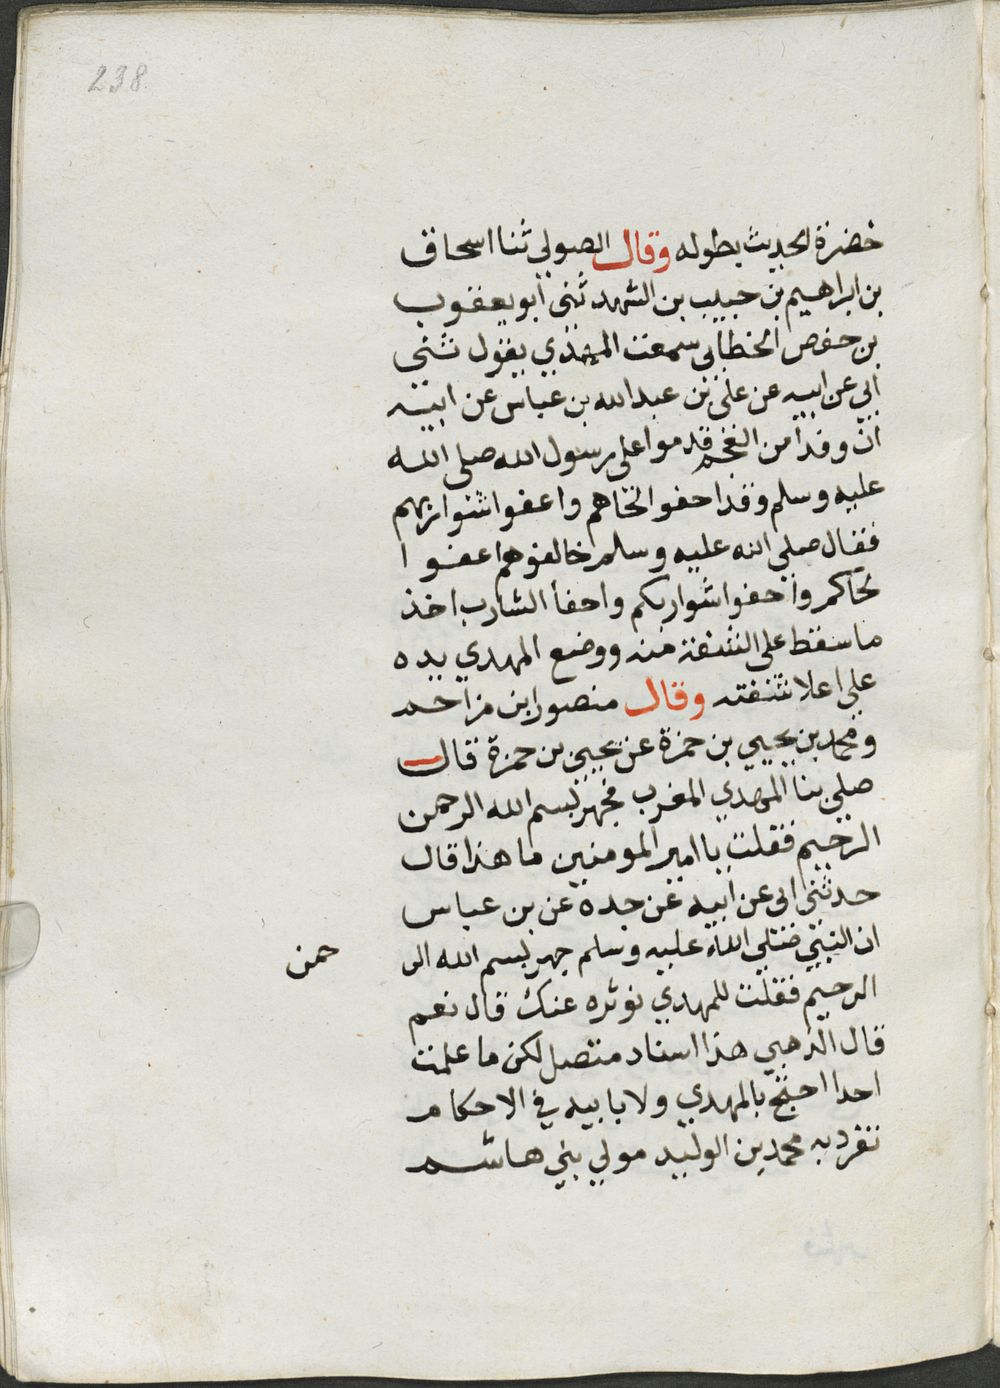 238
خضرة الحديث بطوله وقال الصولي ثنا اسحاق
بن ابراهيم بن حبيب بن الشهد ثنى ابو يعقوب
بن حفص الخطابى سمعت المهدي يقول ثنى
ابي عن ابيه عن على بن عبد الله بن عباس عن ابيه
ان وفدا من العجم قدموا على رسول الله صلى الله
عليه وسلم وقد احفوا لحاهم واعفوا شواربهم
فقال صلى الله عليه وسلم خالفوهم اعفوا
لحاكم واحفوا شواربكم واحفا الشارب اخذ
ما سقط على الشفة منه ووضع المهدي يده
على اعلا شفته وقال منصور ابن مزاحم
ومحمد بن يحيي بن حمزة عن يحيى بن حمزة قال
صلي بنا المهدي المغرب فجهر بسم الله الرحمن
الرحيم فقلت يا امير المومنين ما هذا قال
حدثنى ابى عن ابيه عن جده عن بن عباس
ان النبي صلي الله عليه وسلم جهر بسم الله الر
حمن
الرحيم فقلت للمهدي نوثره عنك قال نعم
قال الذهبي هذا اسناد متصل لكن ما علمت
احدا احتج بالمهدي ولا بابيه في الاحكام
تفرد به محمد بن الوليد مولي بني هاشم